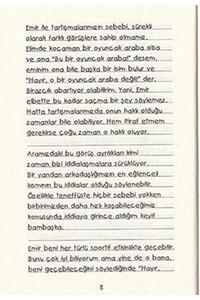 Emir ile tartışmalarımızın sebebi, sürekli
olarak farklı görüşlere sahip olmamız.
Elimde kocaman bir oyuncak araba olsa
ve ona "Bu bir oyuncak araba!" desem,
eminim ona bile başka bir isim bulur ve
"Hayır, o bir oyuncak araba değil!" der.
Birazcık abartıyor olabilirim. Yani, Emir
elbette bu kadar saçma bir şey söylemez.
Hatta tartışmalarımızda onun haklı olduğu
zamanlar bile olabiliyor. Hem itiraf etmem
gerekirse çoğu zaman o haklı oluyor.
Aramızdaki bu görüş ayrılıkları kimi
zaman bizi iddialaşmalara sürüklüyor.
Bir yandan arkadaşlığımızın en eğlenceli
kısmının bu iddialar olduğu söylenebilir.
Özellikle teneffüste hiçbir sebebi yokken
birbirimizden daha hızlı koşabileceğimiz
konusunda iddiaya girince aldığım keyif
bambaşka.
Emir beni her türlü sportif etkinlikte geçebilir.
Bunu çok iyi biliyorum ama yine de o bana,
beni geçebileceğini söylediğinde "Hayır,
8